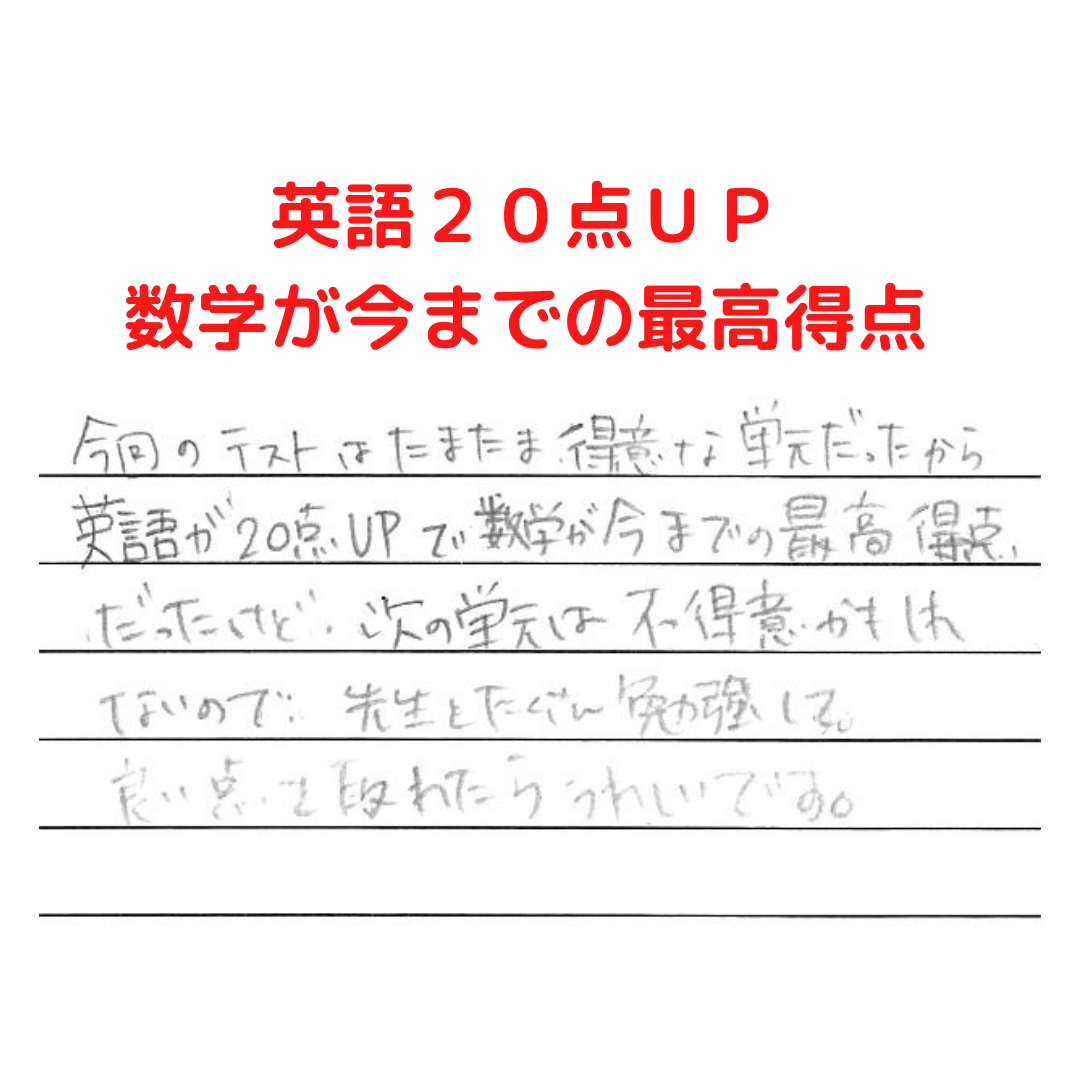 英語２０点ＵＰ
数学が今までの最高得点
今回のテストはたまたま得意な単元だったから
英語が20点UPで数学が今までの最高得点
だったけど、次の単元は不得意かもしれ
ないので、先生とたくさん勉強して。
良い点を取れたらうれしいです。